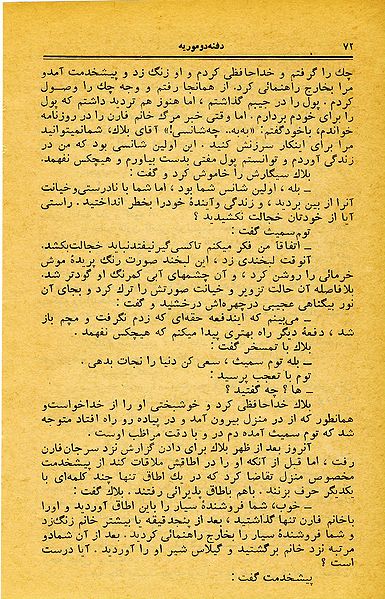 ۷۲ دفنه دوموریه
چك را گرفتم و خداحافظی كردم و او زنگ زد و پیشخدمت آمدو
مرا بخارج راهنمائی كرد. از همانجا رفتم و وجه چك را وصول
كردم. پول را در جیبم گذاشتم ، اما هنوز هم تردید داشتم كه پول
را برای خودم بردارم . اما وقتی خبر مرگ خانم فارن را در روزنامه
خواندم، باخودگفتم: «به‌به. چه‌شانسی!» آقای بلاك، شمانمیتوانید
مرا برای اینكار سرزنش كنید . این اولین شانسی بود كه من در
زندگی آوردم و توانستم پول مفتی بدست بیاورم و هیچكس نفهمد.
بلاك سیگارش را خاموش كرد و گفت :
ــ بله ، اولین شانس شما بود ، اما شما با نادرستی‌وخیانت
آنرا از بین بردید ، و زندگی وآیندهٔ خودرا بخطر انداختید . راستی
آیا از خودتان خجالت نكشیدید ؟
توم‌سمیث گفت :
ــ اتفاقاً من فكر میكنم تاكسی‌گیرنیفتدنباید خجالت‌بكشد.
آنوقت لبخندی زد ، این لبخند صورت رنگ پریدهٔ موش
خرمائی را روشن كرد ، و آن چشمهای آبی كمرنگ او گودتر شد.
بلافاصله آن حالت تزویر و خیانت صورتش را ترك كرد و بجای آن
نور بیگناهی عجیبی درچهره‌اش درخشید و گفت :
ــ می‌بینم كه ایندفعه حقه‌ای كه زدم نگرفت و مچم باز
شد ، دفعهٔ دیگر راه بهتری پیدا میكنم كه هیچكس نفهمد .
بلاك با تمسخر گفت :
ــ بله توم سمیث ، سعی كن دنیا را نجات بدهی .
توم با تعجب پرسید :
ــ ها ؟ چه گفتید ؟
بلاك خداحافظی كرد و خوشبختی او را از خداخواست‌و
همانطور كه از در منزل بیرون آمد و در پیاده رو راه افتاد متوجه
شد كه توم سمیث آمده دم در و با دقت مراظب اوست .
آنروز بعد از ظهر بلاك برای دادن گزارش نزد سرجان‌فارن
رفت ، اما قبل از آنكه او را در اطاقش ملاقات كند از پیشخدمت
مخصوص منزل تقاضا كرد كه در یك اطاق تنها چند كلمه‌ای با
یكدیگر حرف بزنند . باهم باطاق پذیرائی رفتند . بلاك گفت :
ــ خوب، شما فروشندهٔ سیار را باین اطاق آوردید و اورا
باخانم فارن تنها گذاشتید ، بعد از پنجدقیقه یا بیشتر خانم زنگ‌زد
و شما فروشندهٔ سیار را بخارج راهنمائی كردید . بعد از آن شمادو
مرتبه نزد خانم برگشتید و گیلاس شیر او را آوردید . آیا درست
است ؟
پیشخدمت گفت :